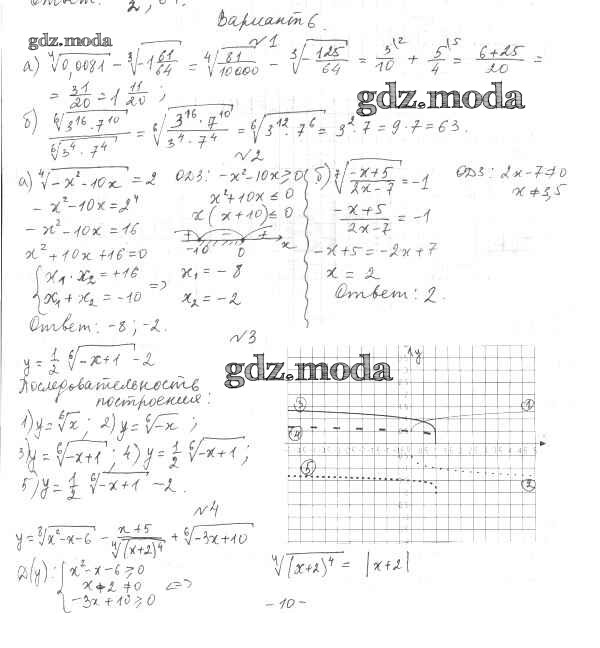 Ответ: 2,
Вариант 6.
gdz.moda
№1
а) ⁴√0,0081 - ³√-1 61/64 = ⁴√81/10000 - ³√-125/64 = 3\2/10 + 5\5/4 = 6+25/20 =
= 31/20 = 1 11/20 ;
gdz.moda
б) ⁶√3¹⁶·7¹⁰ / ⁶√3⁴·7⁴ = ⁶√3¹⁶·7¹⁰/3⁴·7⁴ = ⁶√3¹²·7⁶ = 3²·7 = 9·7 = 63.
№2
а) ⁴√-x²-10x = 2 ОДЗ: -x²-10x ≥ 0
-x²-10x = 2⁴ x²+10x ≤ 0
-x²-10x = 16 x(x+10) ≤ 0
x²+10x+16 = 0 + - + -10 0 x
{ x₁·x₂ = +16 x₁ = -8
x₁+x₂ = -10 => x₂ = -2
Ответ: -8; -2.
б) ⁷√-x+5/2x-7 = -1 ОДЗ: 2x-7≠0
x≠3,5
-x+5/2x-7 = -1
-x+5 = -2x+7
x = 2
Ответ: 2.
№3
y = 1/2 ⁶√-x+1 - 2
gdz.moda
Последовательность
построения:
1) y = ⁶√x ; 2) y = ⁶√-x ;
3) y = ⁶√-x+1 ; 4) y = 1/2 ⁶√-x+1 ;
5) y = 1/2 ⁶√-x+1 - 2.
y
③ ①
④
⑤ ②
№4
y = ⁸√x²-x-6 - x+5/⁴√(x+2)⁴ + ⁶√-3x+10
⁴√(x+2)⁴ = |x+2|
D(y): { x²-x-6 ≥ 0
x+2 ≠ 0 <=>
-3x+10 ≥ 0
-10-